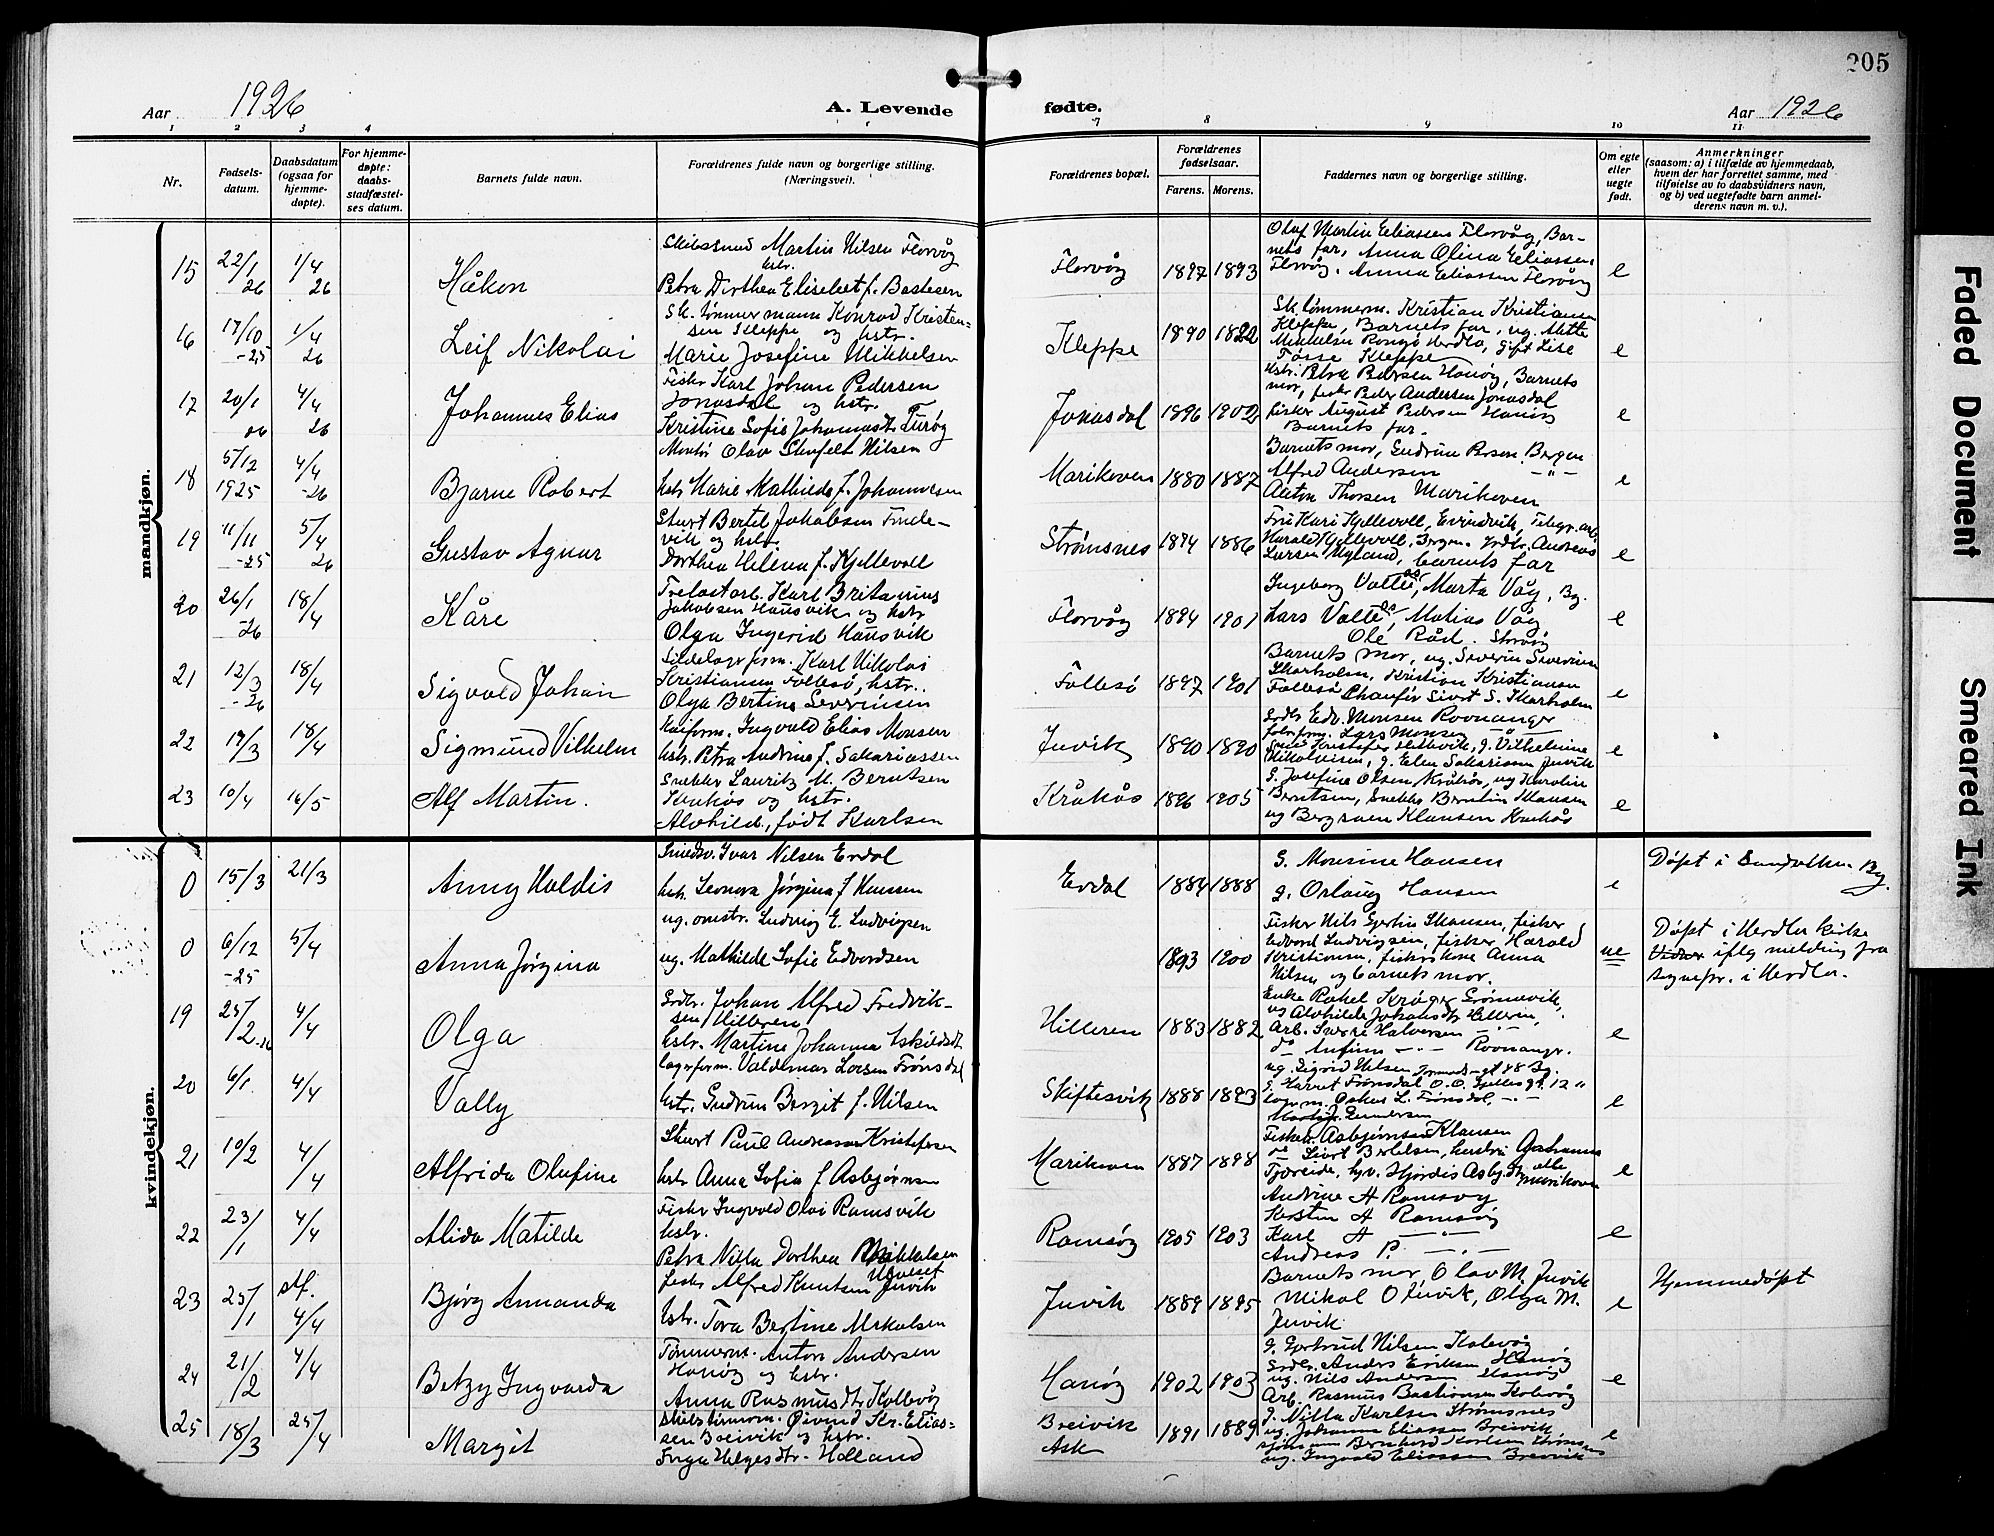 205
Aar 1926
A. Levende fødte.
Aar 1926
1 2 3 4 7 8 9 10 11
Nr.
Fødsels-
datum.
Daabsdatum
(ogsaa for
hjemme-
døpte).
For hjemme-
døpte:
daabs-
stadfæstel-
ses datum.
Barnets fulde navn.
Forældrenes fulde navn og borgerlige stilling.
(Næringsvei).
Forældrenes bopæl.
Forældrenes
fødselsaar.
Farens. Morens.
Faddernes navn og borgerlige stilling.
Om egte
eller
uegte
født.
Anmerkninger
(saasom: a) i tilfælde av hjemmedaab,
hvem der har forrettet samme, med
tilføielse av to daabsvidners navn,
og b) ved uegtefødte barn anmel-
derens navn m. v.).
mandkjøn.
15 22/1 26 1/4 26 Håkon
Martin Nilsen Florvåg
hstr.
Petra Dorthea Elisebet f. Bastesen
Florvåg 1897 1893
Olaf Martin Eliassen Florvåg, Bar-
nets far, Anna Olina Eliassen,
Florvåg. Anna Eliassen Florvåg
e
16 17/10 -25 1/4 26 Leif Nikolai
Sk. tømmermann Konrad Kristen-
sen Kleppe og hstr.
Marie Josefine Mikkelsen
Kleppe 1890
Sk. tømmerm. Kristian Kristiansen
Kleppe, Barnets far, ug. Mette
Mikkelsen Rongø Herdla, gift Lise
Fosse Kleppe
e
17 20/1 26 4/4 26 Johannes Elias
Fisker Karl Johan Pedersen
Jonasdal og hstr.
Kristine Sofie Johannesdtr. Turøy
Jonasdal 1896 1902
hstr. Petra Pedersen Hanøy, Barnets
mor, fisker Peder Andersen Jonasdal
fisker August Pedersen Hanøy
Barnets far.
e
18 5/12 1925 4/4 -26 Bjarne Robert
Montør Olav Stenfelt Nilsen
hstr Marie Mathilde f. Johannesen
Marikoven 1880 1887
Barnets mor, Gudrun Person Bergen
Alfred Andersen -"-
Anton Thorsen Marikoven
e
19 11/11 -25 5/4 26 Gustav Agnar
Stuert Bertel Jakobsen Finde-
vik og hstr.
Dorthea Helena f. Kjellevoll
Strømsnes 1894 1886
Fru Kari Kjellevoll, Evindvik, Telegr.arb.
Harald Kjellevoll, Bergen. Grdbr. Andreas
Larsen Myland, barnets far
e
20 26/1 -26 18/4 Kåre
Trelastarb. Karl Britanius
Jakobsen Hausvik og hstr
Olga Ingerid Hausvik
Florvåg 1894 1901
Ingeborg Valle, Marta Våg, Bg.
Lars Valle, Matias Våg
Ole Råd. Storvåg
e
21 12/3 -26 18/4 Sigvald Johan
Sildelagr.form. Karl Nikolai
Kristiansen Follesø, hstr.
Olga Bertine Severinsen
Follesø 1897 1901
Barnets mor, ug. Severin Severinsen
Skarholm, Kristian Kristiansen
Follesø Chauffør Sivert S. Skarholm
e
22 19/3 18/4 Sigmund Vilhelm
Ingvald Elias Monsen
hstr. Petra Andrine f. Sakariassen
Juvik 1890 1890
Grdbr Edv. Monsen Rovnanger
Lars Monsen -"-
Kristofer Hellevik, g. Vilhelmine
Mikkelsen, g. Elen Sakariasen Juvik
e
23 10/4 16/5 Alf Martin.
Snekker Lauritz M. Berntsen
Kråkås og hstr.
Alvhild, født Karlsen
Kråkås 1896 1905
G. Josefine Olsen, Kråkås, ug Karoline
Berntsen, Snekker Berntin Klausen
og Bergsven Klausen Kråkås
e
kvindekjøn.
0 15/3 21/3 Anny Haldis
Smedsv. Ivar Nilsen Erdal
hstr. Leonora Jørgina f. Hansen
Erdal 1884 1888
G. Monsine Hansen
g. Orlaug Hansen
e
Døpt i Sandviken Bg.
0 6/12 -25 5/4 Anna Jørgina
ug. Ludvig E. Ludvigsen
ug. Mathilde Sofie Edvardsen
1893 1900
Fisker Nils Gjertin Skansen, fisker
Edvard Ludvigsen, fisker Harald
Kristiansen, fiskers kone Anna
Nilsen og barnets mor.
ue
Døpt i Herdla kirke
iflg melding fra
sognepr. i Herdla.
19 25/2 -26 4/4 Olga
Grdbr. Johan Alfred Fredrik-
sen Hilleren
hstr. Martine Johanna Eskildsdtr
Hilleren 1883 1882
Enke Rakel Krøger Grønnevik,
ug Alvhilde Johansdtr Hilleren,
Arb. Sverre Halvorsen -"-
do Anfinn -"- Rovnangr.
e
20 6/1 4/4 Vally
lagerform. Valdemar Larsen Frønsdal
hstr. Gudrun Bergit f. Nilsen
Skiftesvik 1888 1893
ug. Sigrid Nilsen Tormods gt 48 Bg.
g. Harriet Frønsdal O. O. Kjelles gt. 12 "
lagerm. Oskar L. Frønsdal, -"-
Gundersen
e
21 10/2 4/4 Alfrida Olufine
Stuert Paul Andreassen Kristofersen
hstr Anna Sofia f Asbjørnsen
Marikoven 1887 1898
Fisker Asbjørnsen Klausen
do Sivert Bertelsen, herstri Gahanna
Tjoreide, hjv. Hjørdis Asbj.dtr alle Marikoven
e
22 23/1 4/4 Alida Matilde
Fisker Ingvald Olai Ramsvik
hstr.
Petra Nilla Dorthea Mikkelsen
Ramsøy 1905 1903
Andrine A Ramsøy
Kerstin A Ramsøy
Karl A -"-
Andreas P. -"-
e
23 25/1 st. 4/4 Bjørg Annanda
Alfred Knutsen Juvik
hstr. Tora Bertine Mikalsen
Juvik 1889 1895
Barnets mor, Olav M. Juvik
Mikal O Juvik, Olga M.
Juvik
e
Hjemmedøpt
24 21/2 4/4 Betzy Ingvarda
Tømmerm. Anton Andersen
Hanøy og hstr.
Anna Rasmusdtr Kollevåg
Hanøy 1902 1903
g. Gertrud Nilsen Kolevåg
Grdbr. Anders Eriksen Hanøy
ug. Nils Andersen Hanøy
Arb. Rasmus Bastiansen Kolevåg
e
25 18/3 25/4 Margit
Skibstømrerm. Øivind Kr. Elias-
sen Breivik og hstr.
Inga Helgesdtr. Holland
Breivik
Ask
1891 1889
g. Nilla Karlsen Strømsnes
ug. Johanna Eliassen Breivik
sjømann Bernhard Karlsen Strømsnes
ug. Ingvald Eliassen Breivik
e
Faded Document
Smeared Ink